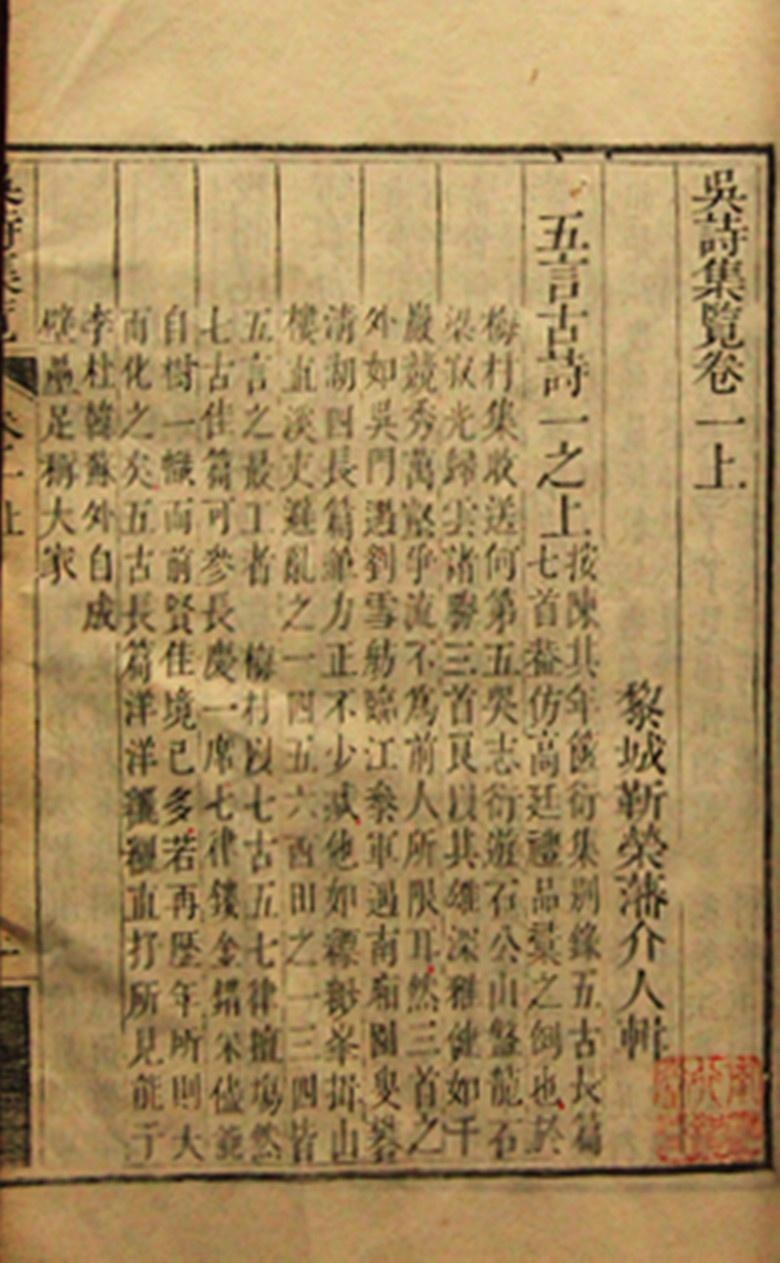 吳詩集覽卷一上
黎城靳榮藩介人輯
五言古詩一之上
按陳其年篋衍集別錄五古長篇
七首蓋仿高廷禮品彙之例也於
梅村集收送何第五哭志衍遊石公山盤龍石
梁寂光歸雲諸勝三首良以其雄深雅健如千
巖競秀萬壑爭流不為前人所限耳然三首之
外如吳門遇劉雪舫臨江參軍過南廂園叟礬
清湖四長篇筆力正不少減他如縹緲峯揖山
樓直溪吏避亂之一四五六西田之一三四皆
五言之最工者 梅村以七古五七律擅場然
七古佳篇可參長慶一席七律鏤金錯采儘能
自樹一幟而前賢佳境已多若再歷年所則大
而化之矣五古長篇洋洋纚纚直打所見能于
李杜韓蘇外自成
壁壘足稱大家
吳詩集覽